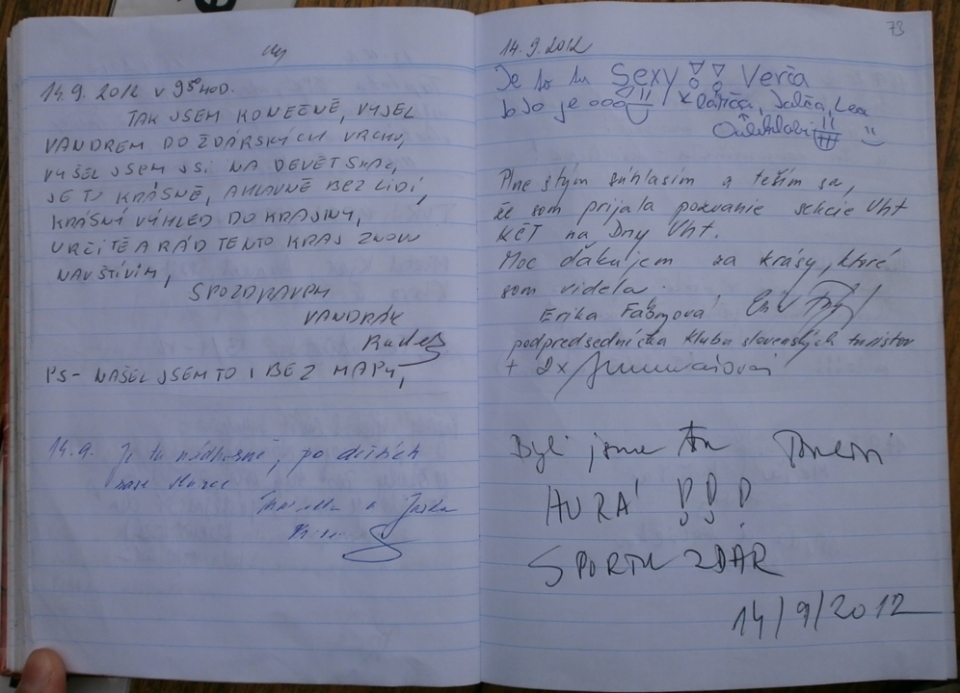 14.9. 2012 v 9⁵⁰ HOD.
TAK JSEM KONEČNĚ, VYJEL
VANDREM DO ŽDÁRSKÝCH VRCHŮ,
VYŠEL JSEM JSI NA DEVĚT SKAL,
JE TU KRÁSNĚ, A HLAVNĚ BEZ LIDÍ,
KRÁSNÝ VÝHLED DO KRAJINY,
URČITĚ A RÁD TENTO KRAJ ZNOVU
NAVŠTÍVÍM,
S POZDRAVEM
VANDRÁK
PS - NAŠEL JSEM TO I BEZ MAPY,
14.9. Je tu nádherně, po deštích
zase slunce
a Jarka
73
14.9.2012
Je to tu Sexy!! Verča
Plne s tým súhlasím a teším sa,
že som prijala pozvanie sekcie Vht
KČT na Dny Vht.
Moc ďakujem za krásy, ktoré
som videla.
Erika Fábryová
podpredsedníčka klubu slovenských turistov
+ 2x
Byli jsme tu
HURÁ !!!
SPORTU ZDAR
14/9/2012